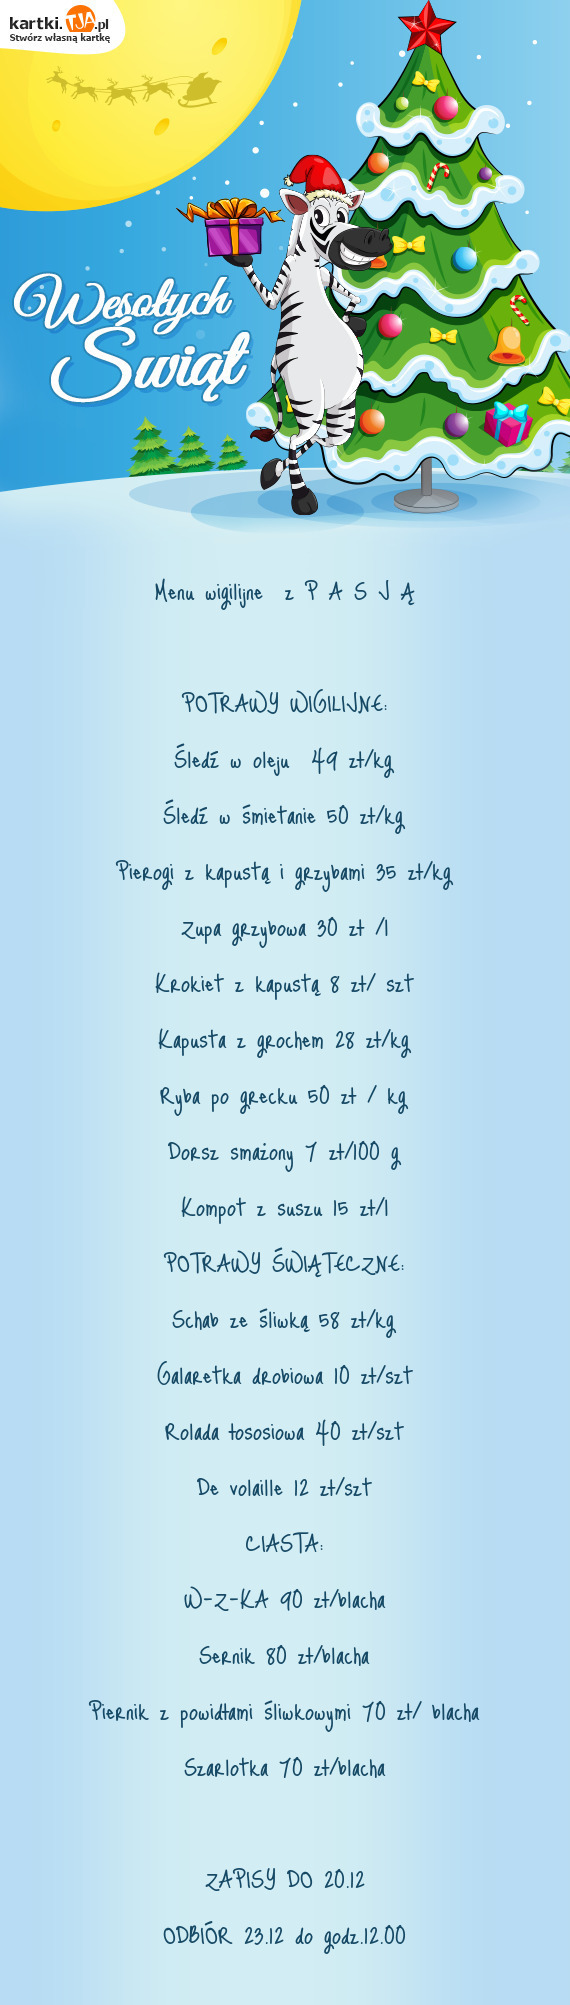 kartki.TJA.pl
Stwórz własną kartkę
Wesołych
Świąt
Menu wigilijne z P A S J Ą
POTRAWY WIGILIJNE:
Śledź w oleju 49 zł/kg
Śledź w śmietanie 50 zł/kg
Pierogi z kapustą i grzybami 35 zł/kg
Zupa grzybowa 30 zł /l
Krokiet z kapustą 8 zł/ szt
Kapusta z grochem 28 zł/kg
Ryba po grecku 50 zł / kg
Dorsz smażony 7 zł/100 g
Kompot z suszu 15 zł/l
POTRAWY ŚWIĄTECZNE:
Schab ze śliwką 58 zł/kg
Galaretka drobiowa 10 zł/szt
Rolada łososiowa 40 zł/szt
De volaille 12 zł/szt
CIASTA:
W-Z-KA 90 zł/blacha
Sernik 80 zł/blacha
Piernik z powidłami śliwkowymi 70 zł/ blacha
Szarlotka 70 zł/blacha
ZAPISY DO 20.12
ODBIÓR 23.12 do godz.12.00